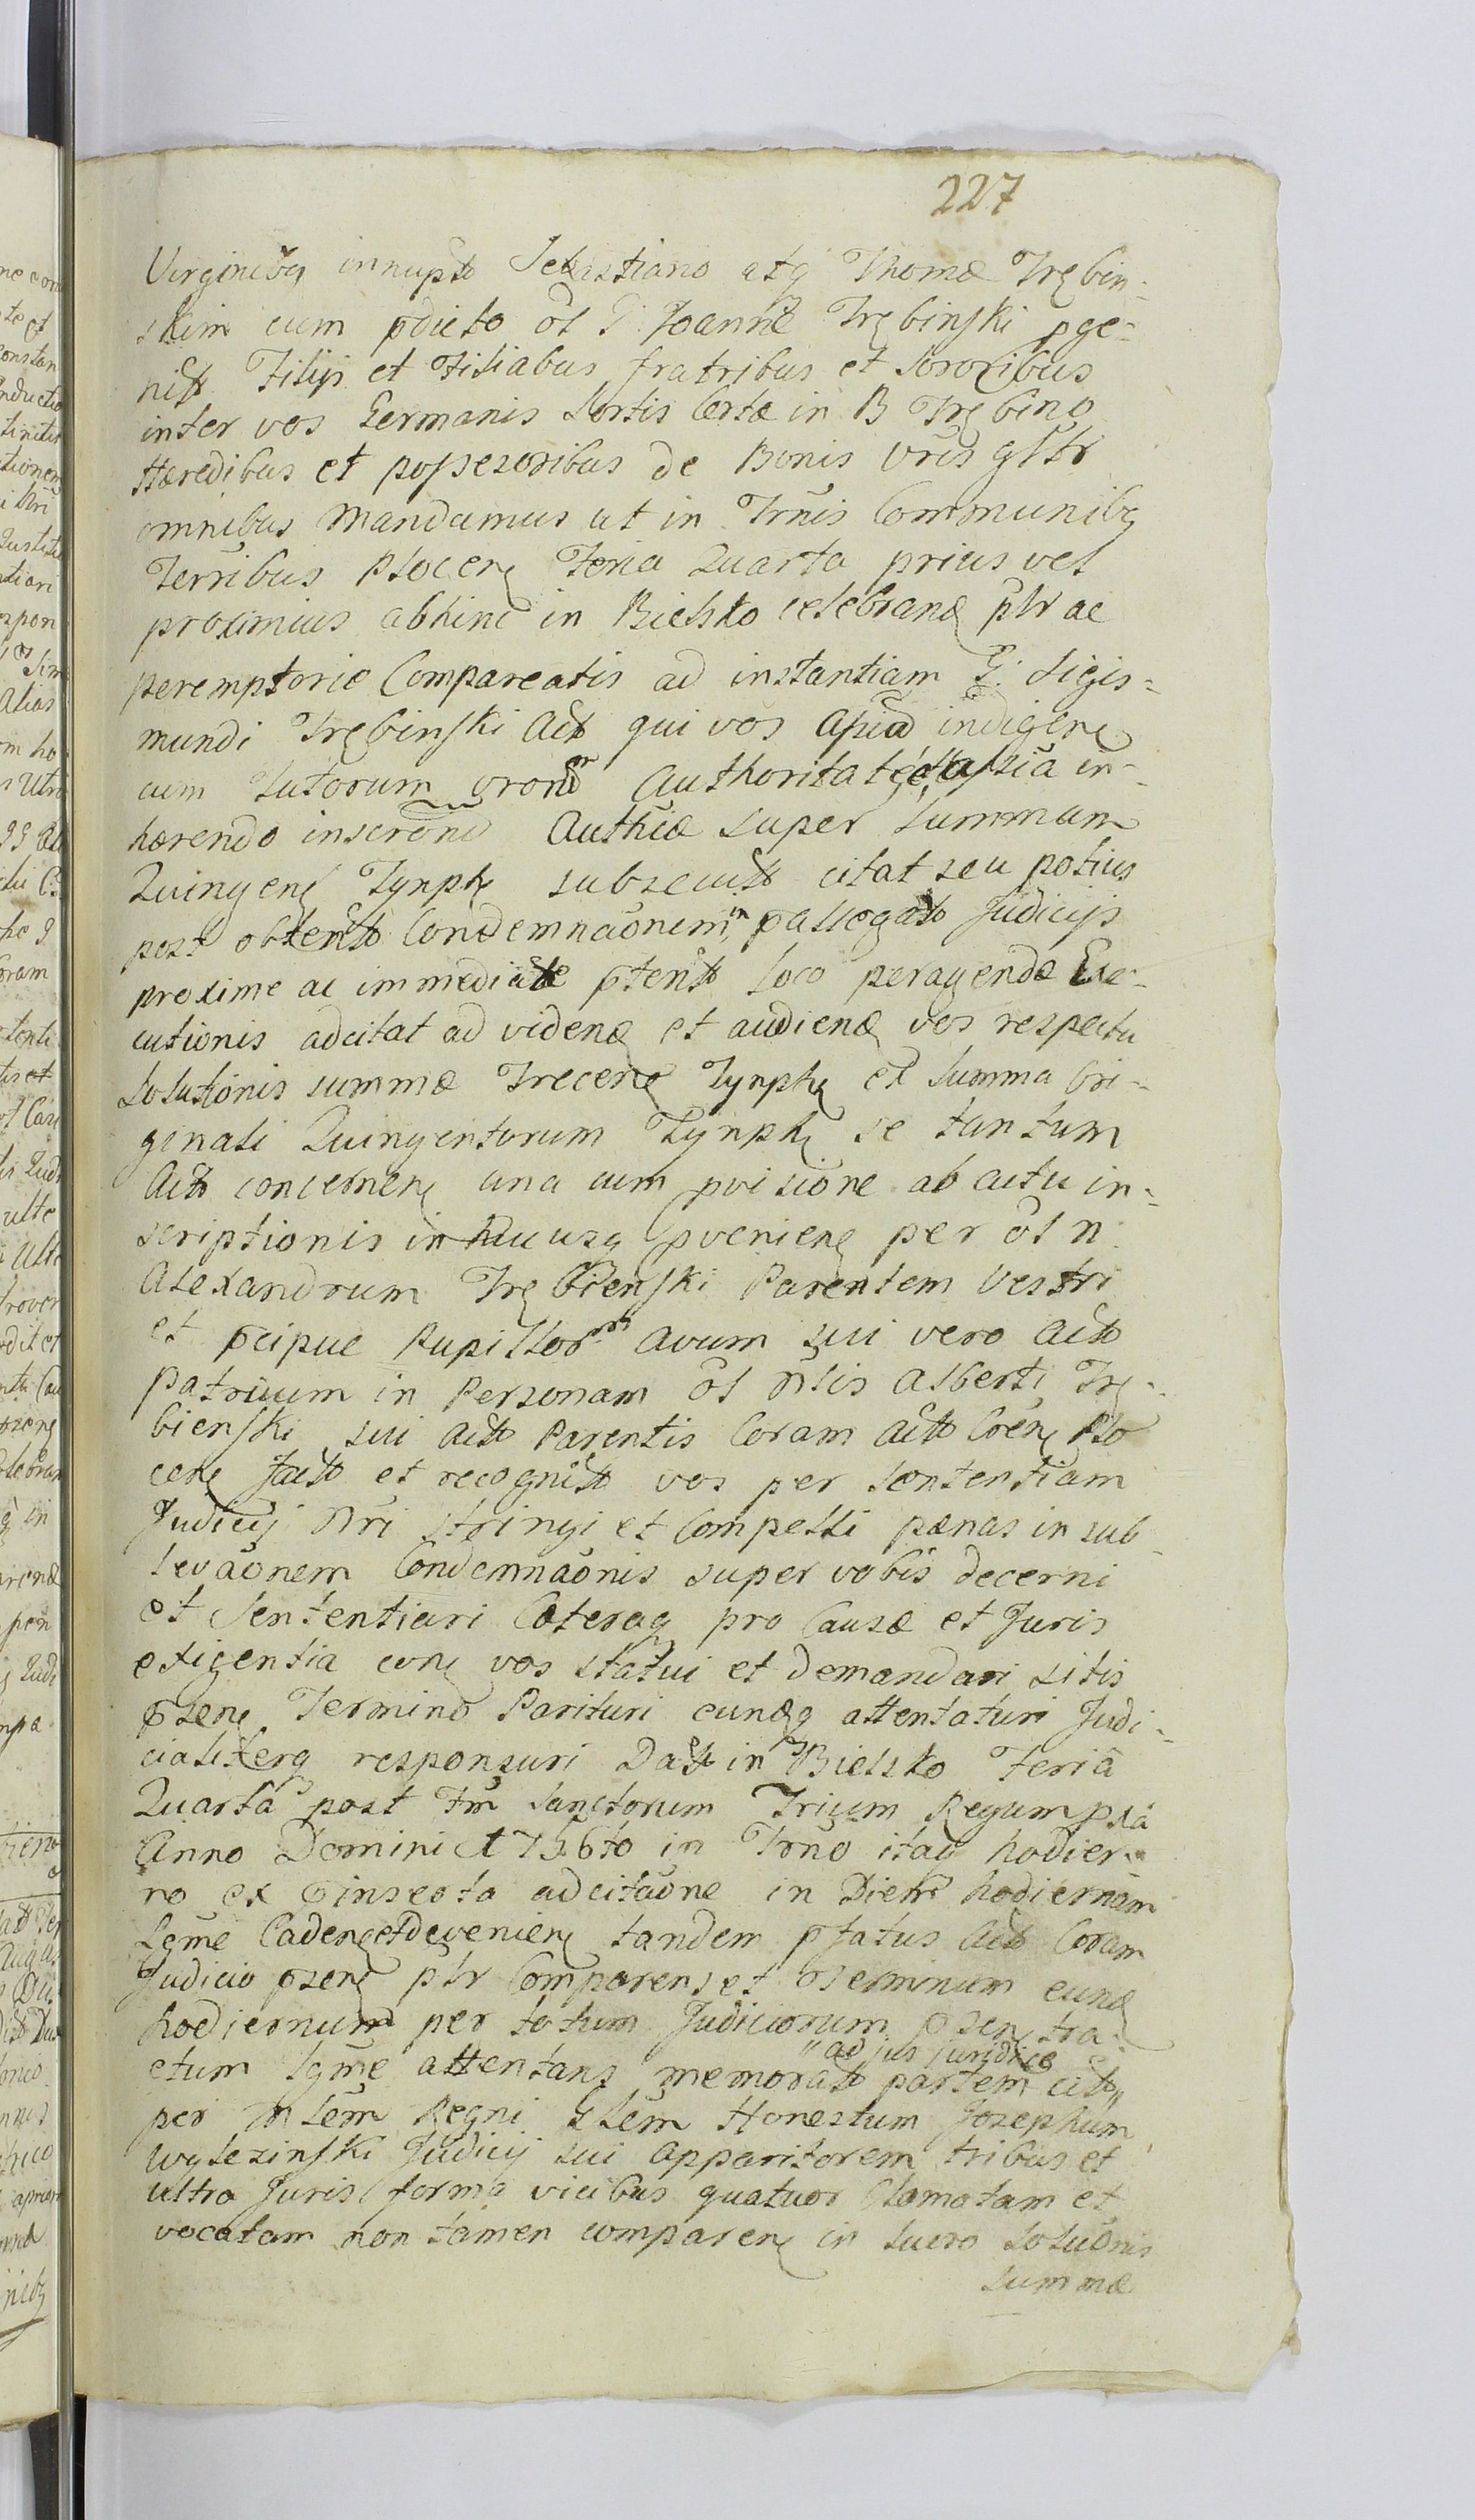 227
Virginibq innupto Sebastiano atq Thomæ Trębin-
skim cum pdicto ol G Joanne Trębinski pge-
nito Filijs et Filiabus fratribus et Sororibus
inter vos Germanis Sortis Certæ in B Trębino
Hæredibus et possesoribus de Bonis vris gltr
omnibus Mandamus ut in Trnis Communibq
Terribus Plocen Feria Quarta prius vel
proximius abhinc in Bielsko celebrand plr ac
peremptorie Compareatis ad instantiam G: Sigis-
mundi Trębinski Acto qui vos indigen
cum tutorum vrorum Authoritate in-
hærendo inscroni Authcæ super Summam
Quingent Tynph subsecuto citat seu potius
post obtento Condemnaonem in pallegato Judicijs
proxime ac immediate ptento loco peragendæ Exe-
cutionis adcitat ad vidend et audiend vos respectu
Solutionis summæ Trecent Tynph ex Summa Ori-
ginali Quingentorum Tynph se tantum
Acto concernen una cum pvisione ab actu in-
scriptionis in huc usq pvenien per ol N
Alexandrum Trębienski Parentem Vestri
et pcipue Pupillorum avum sui vero Acto
patruum in Personam ol Nlis Alberti Trę-
bienski sui Acto Parentis Coram Acto Cren Plo
cen facto et recognito vos per Sententiam
Judicij Nri stringi et Compelli pænas in sub-
levaonem Condemnaonis super vobis decerni
et Sententiari Cæteraq pro Causæ et Juris
exigentia cone vos statui et demandari sitis
psen Termino Parituri eundq attentaturi Judi-
cialiterq responsuri Dato in Bielsko Feria
Quarta post Fm Sanctorum Trium Regum pxa
Anno Domini 1756to in Trno itaq hodier-
no ex pinserta adcitaone in Diem hodiernam
Lgme Caden et devenien tandem pfatus Acto Coram
Judicio psen plr Comparens et Terminum eund
hodiernum per totum Judiciorum psen tra-
ctum lgme attentans memorato partem "ad jus juridice cito"
per Mlem Regni Glem Honestum Josephum
Wylezinski Judicij sui Apparitorem tribus et
ultra Juris forma vicibus quatuor Clamatam et
vocatam non tamen comparen in lucro Soluonis
summæ